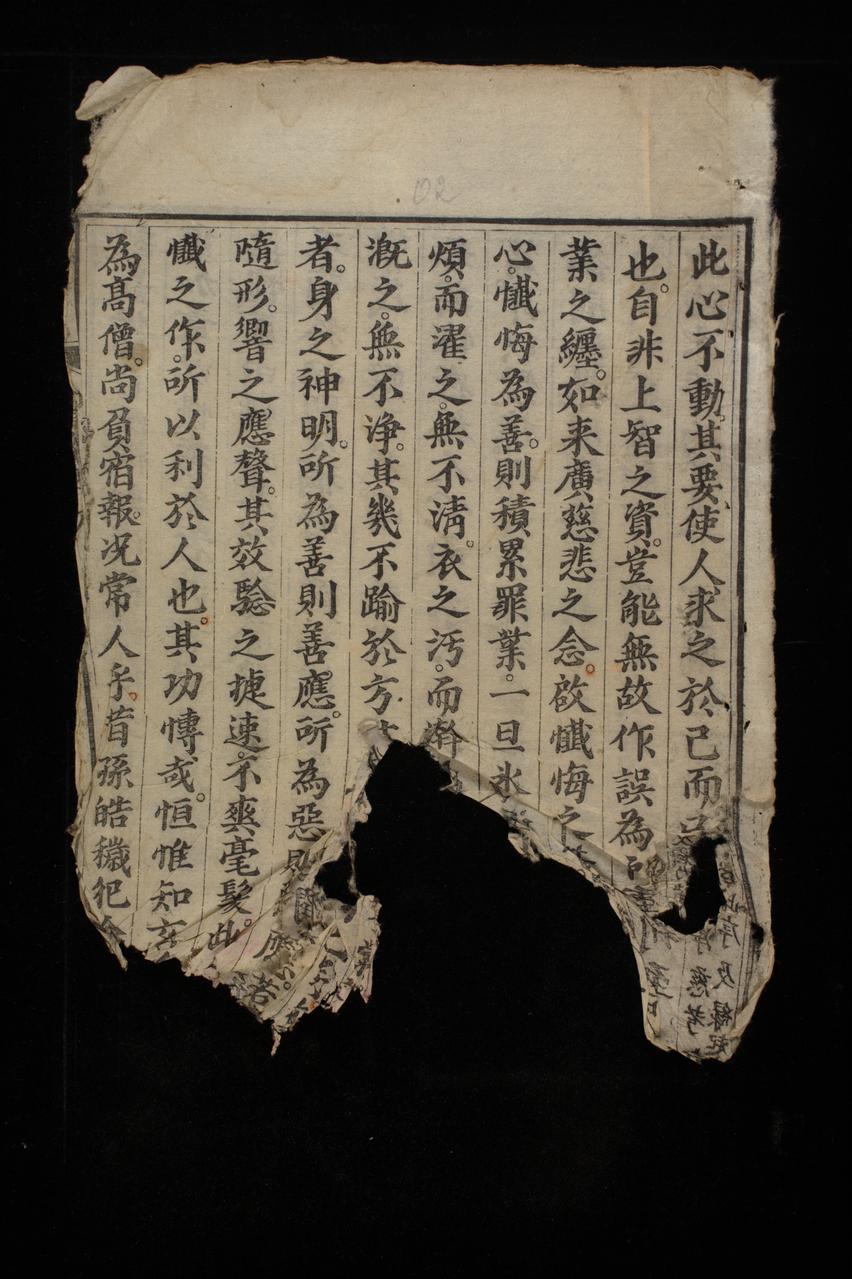 此心不動。其要使人求之於己而
也。自非上智之資。豈能無故作誤為
業之纏。如来廣慈悲之念。啟懺悔之
心。懺悔為善。則積累罪業。一旦氷
煩。而濯之。無不清。衣之汚。而澣
漑之。無不净。其幾不踰於方
者。身之神明。所為善則善應。所為惡則
隨形。響之應聲。其效驗之捷速。不爽毫髮。此
懺之作。所以利於人也。其功愽哉。恒惟知玄
為髙僧。尚負宿報。况常人乎。昔孫皓穢犯